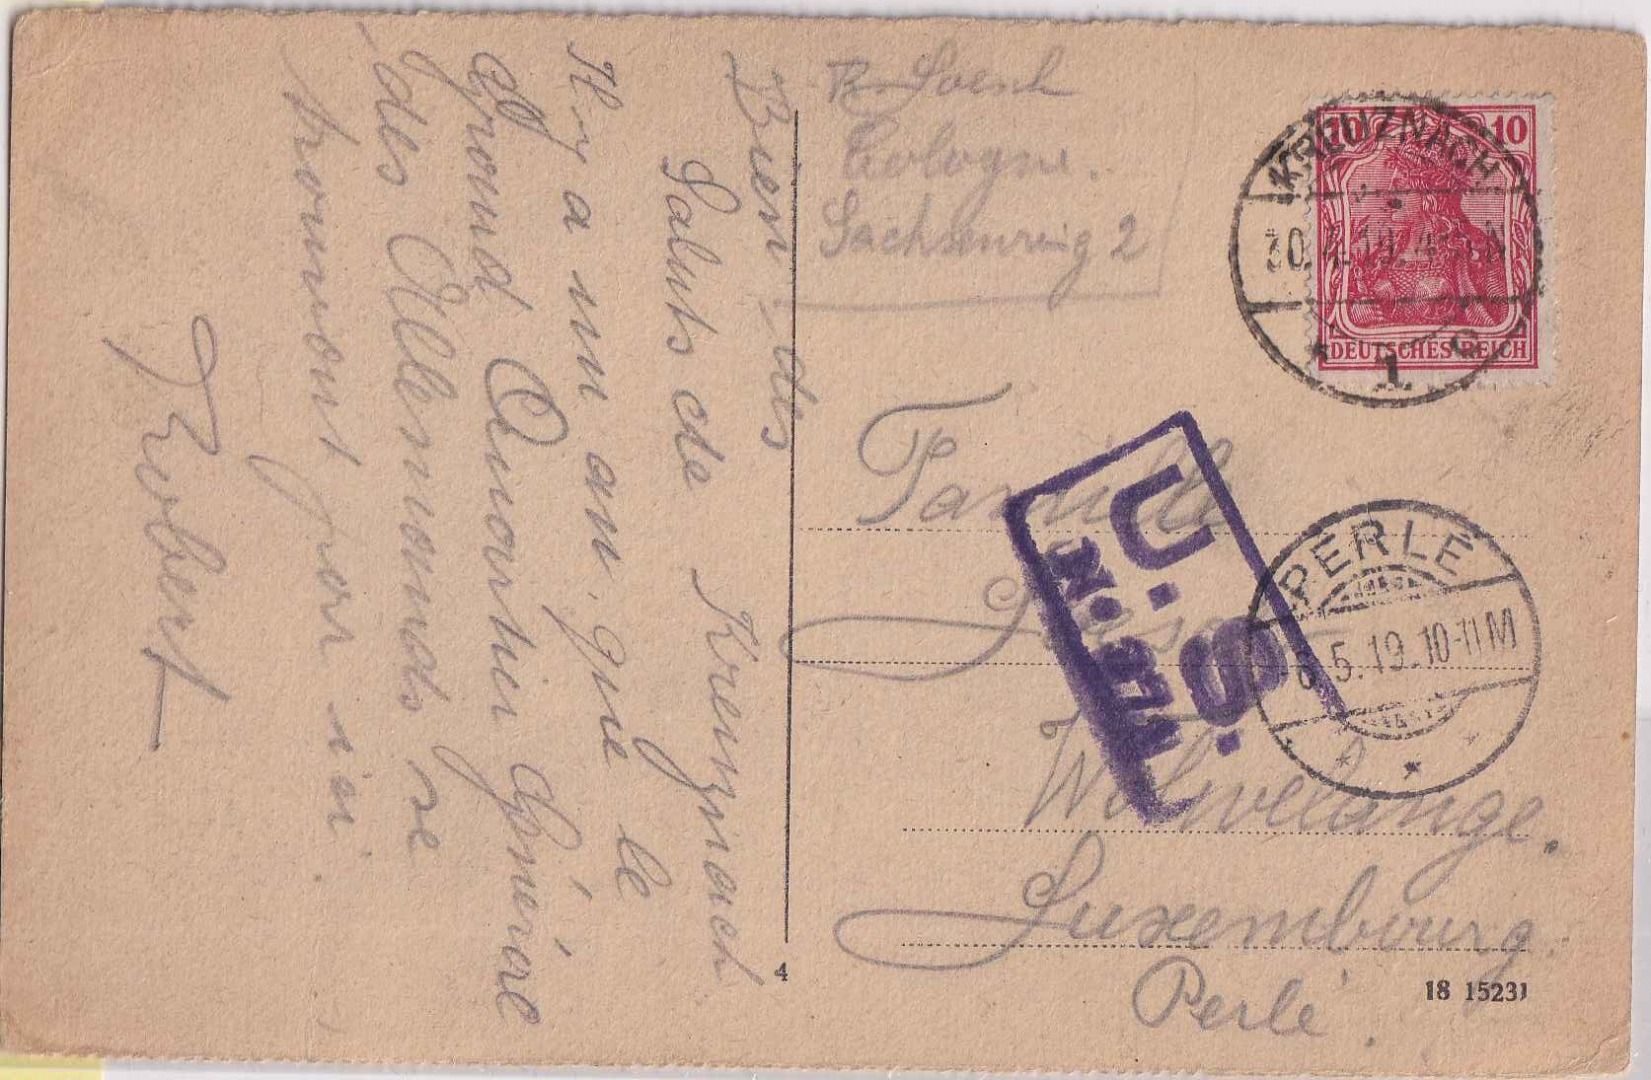 R. Loesch
Cologne.
Sachsenring 2
10 10
DEUTSCHES REICH
KREUZNACH
30.4.19. 4-5 N
1
Famille
Wolwelange.
Luxembourg.
Perlé.
U.S.
PERLE
6.5.19.10-11 M
4
18 15231
Bien des
Saluts de Kreuznach
Il y a un an, que le
grand Quartier général
des Allemands se
trouvait par ici.
Robert